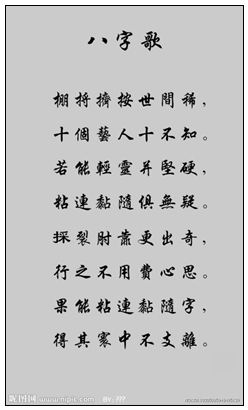 八字歌
棚捋擠按世間稀，
十個藝人十不知。
若能輕靈并堅硬，
粘連黏隨俱無疑。
採裂肘靠更出奇，
行之不用費心思。
果能粘連黏隨字，
得其寰中不支離。
昵图网 www.nipic.com BY: ???